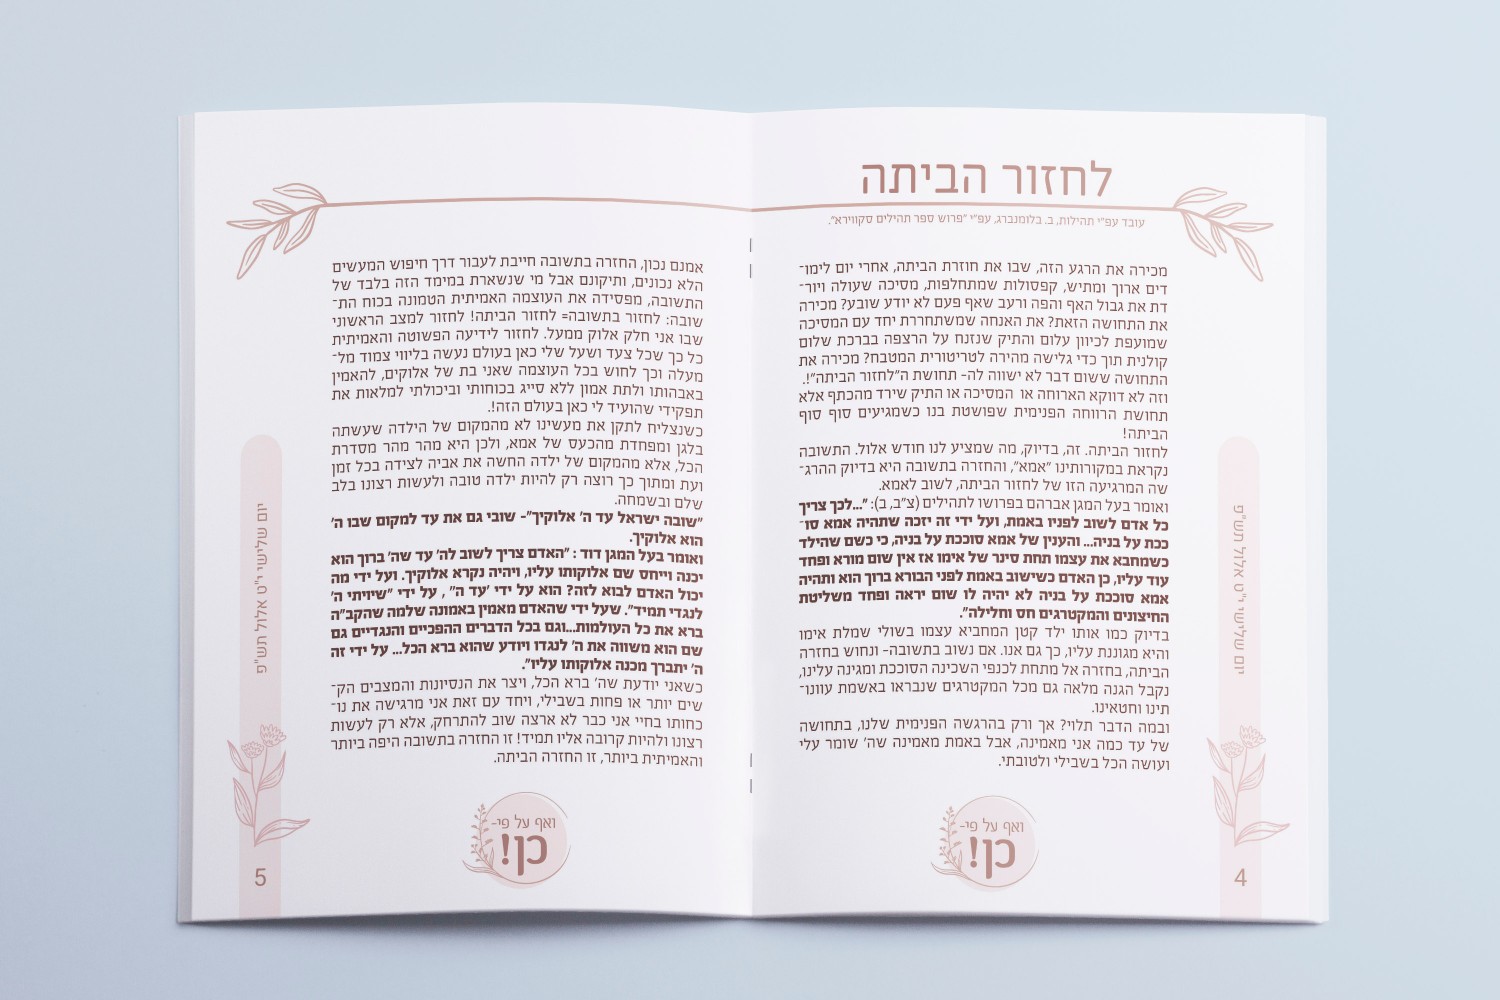 לחזור הביתה
עובד עפ"י תהילות, ב. בלומנברג, עפ"י "פרוש ספר תהילים סקווירא".
מכירה את הרגע הזה, שבו את חוזרת הביתה, אחרי יום לימו־
דים ארוך ומתיש, קפסולות שמתחלפות, מסיכה שעולה ויור־
דת את גבול האף והפה ורעב שאף פעם לא יודע שובע? מכירה
את התחושה הזאת? את האנחה שמשתחררת יחד עם המסיכה
שמועפת לכיוון עלום והתיק שנזנח על הרצפה בברכת שלום
קולנית תוך כדי גלישה מהירה לטריטורית המטבח? מכירה את
התחושה ששום דבר לא ישווה לה- תחושת ה"לחזור הביתה"!.
וזה לא דווקא הארוחה או המסיכה או התיק שירד מהכתף אלא
תחושת הרווחה הפנימית שפושטת בנו כשמגיעים סוף סוף
הביתה!
לחזור הביתה. זה, בדיוק, מה שמציע לנו חודש אלול. התשובה
נקראת במקורותינו "אמא", והחזרה בתשובה היא בדיוק ההרג־
שה המרגיעה הזו של לחזור הביתה, לשוב לאמא.
ואומר בעל המגן אברהם בפרושו לתהילים (צ"ב, ב): "...לכך צריך
כל אדם לשוב לפניו באמת, ועל ידי זה יזכה שתהיה אמא סו־
ככת על בניה... והענין של אמא סוככת על בניה, כי כשם שהילד
כשמחבא את עצמו תחת סינר של אימו אז אין שום מורא ופחד
עוד עליו, כן האדם כשישוב באמת לפני הבורא ברוך הוא ותהיה
אמא סוככת על בניה לא יהיה לו שום יראה ופחד משליטת
החיצונים והמקטרגים חס וחלילה".
בדיוק כמו אותו ילד קטן המחביא עצמו בשולי שמלת אימו
והיא מגוננת עליו, כך גם אנו. אם נשוב בתשובה- ונחוש בחזרה
הביתה, בחזרה אל מתחת לכנפי השכינה הסוככת ומגינה עלינו,
נקבל הגנה מלאה גם מכל המקטרגים שנבראו באשמת עוונו־
תינו וחטאינו.
ובמה הדבר תלוי? אך ורק בהרגשה הפנימית שלנו, בתחושה
של עד כמה אני מאמינה, אבל באמת מאמינה שה' שומר עלי
ועושה הכל בשבילי ולטובתי.
יום שלישי י"ט אלול תש"פ
ואף על פי-
כן!
4
אמנם נכון, החזרה בתשובה חייבת לעבור דרך חיפוש המעשים
הלא נכונים, ותיקונם אבל מי שנשארת במימד הזה בלבד של
התשובה, מפסידה את העוצמה האמיתית הטמונה בכוח הת־
שובה: לחזור בתשובה= לחזור הביתה! לחזור למצב הראשוני
שבו אני חלק אלוק ממעל. לחזור לידיעה הפשוטה והאמיתית
כל כך שכל צעד ושעל שלי כאן בעולם נעשה בליווי צמוד מל־
מעלה וכך לחוש בכל העוצמה שאני בת של אלוקים, להאמין
באבהותו ולתת אמון ללא סייג בכוחותי וביכולתי למלאות את
תפקידי שהועיד לי כאן בעולם הזה!.
כשנצליח לתקן את מעשינו לא מהמקום של הילדה שעשתה
בלגן ומפחדת מהכעס של אמא, ולכן היא מהר מהר מסדרת
הכל, אלא מהמקום של ילדה החשה את אביה לצידה בכל זמן
ועת ומתוך כך רוצה רק להיות ילדה טובה ולעשות רצונו בלב
שלם ובשמחה.
"שובה ישראל עד ה' אלוקיך"- שובי גם את עד למקום שבו ה'
הוא אלוקיך.
ואומר בעל המגן דוד : "האדם צריך לשוב לה' עד שה' ברוך הוא
יכנה וייחס שם אלוקותו עליו, ויהיה נקרא אלוקיך. ועל ידי מה
יכול האדם לבוא לזה? הוא על ידי 'עד ה'" , על ידי "שיויתי ה'
לנגדי תמיד". שעל ידי שהאדם מאמין באמונה שלמה שהקב"ה
ברא את כל העולמות...וגם בכל הדברים ההפכיים והנגדיים גם
שם הוא משווה את ה' לנגדו ויודע שהוא ברא הכל... על ידי זה
ה' יתברך מכנה אלוקותו עליו".
כשאני יודעת שה' ברא הכל, ויצר את הנסיונות והמצבים הק־
שים יותר או פחות בשבילי, ויחד עם זאת אני מרגישה את נו־
כחותו בחיי אני כבר לא ארצה שוב להתרחק, אלא רק לעשות
רצונו ולהיות קרובה אליו תמיד! זו החזרה בתשובה היפה ביותר
והאמיתית ביותר, זו החזרה הביתה.
יום שלישי י"ט אלול תש"פ
ואף על פי-
כן!
5